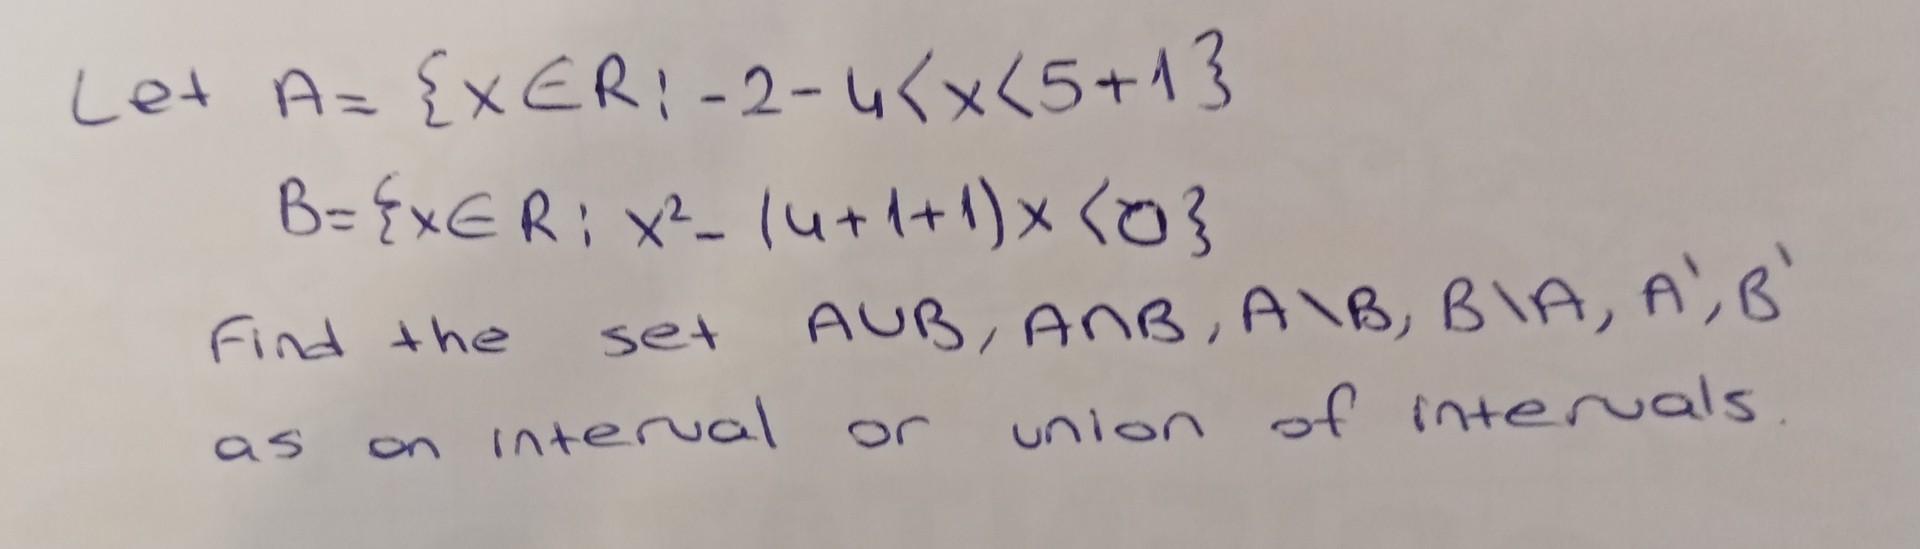 Let A= {x∈R; -2-4<x<5+1}
B={x∈R; x²-(4+1+1)x<0}
Find the set A∪B, A∩B, A\B, B\A, A', B'
as an interval or union of intervals.